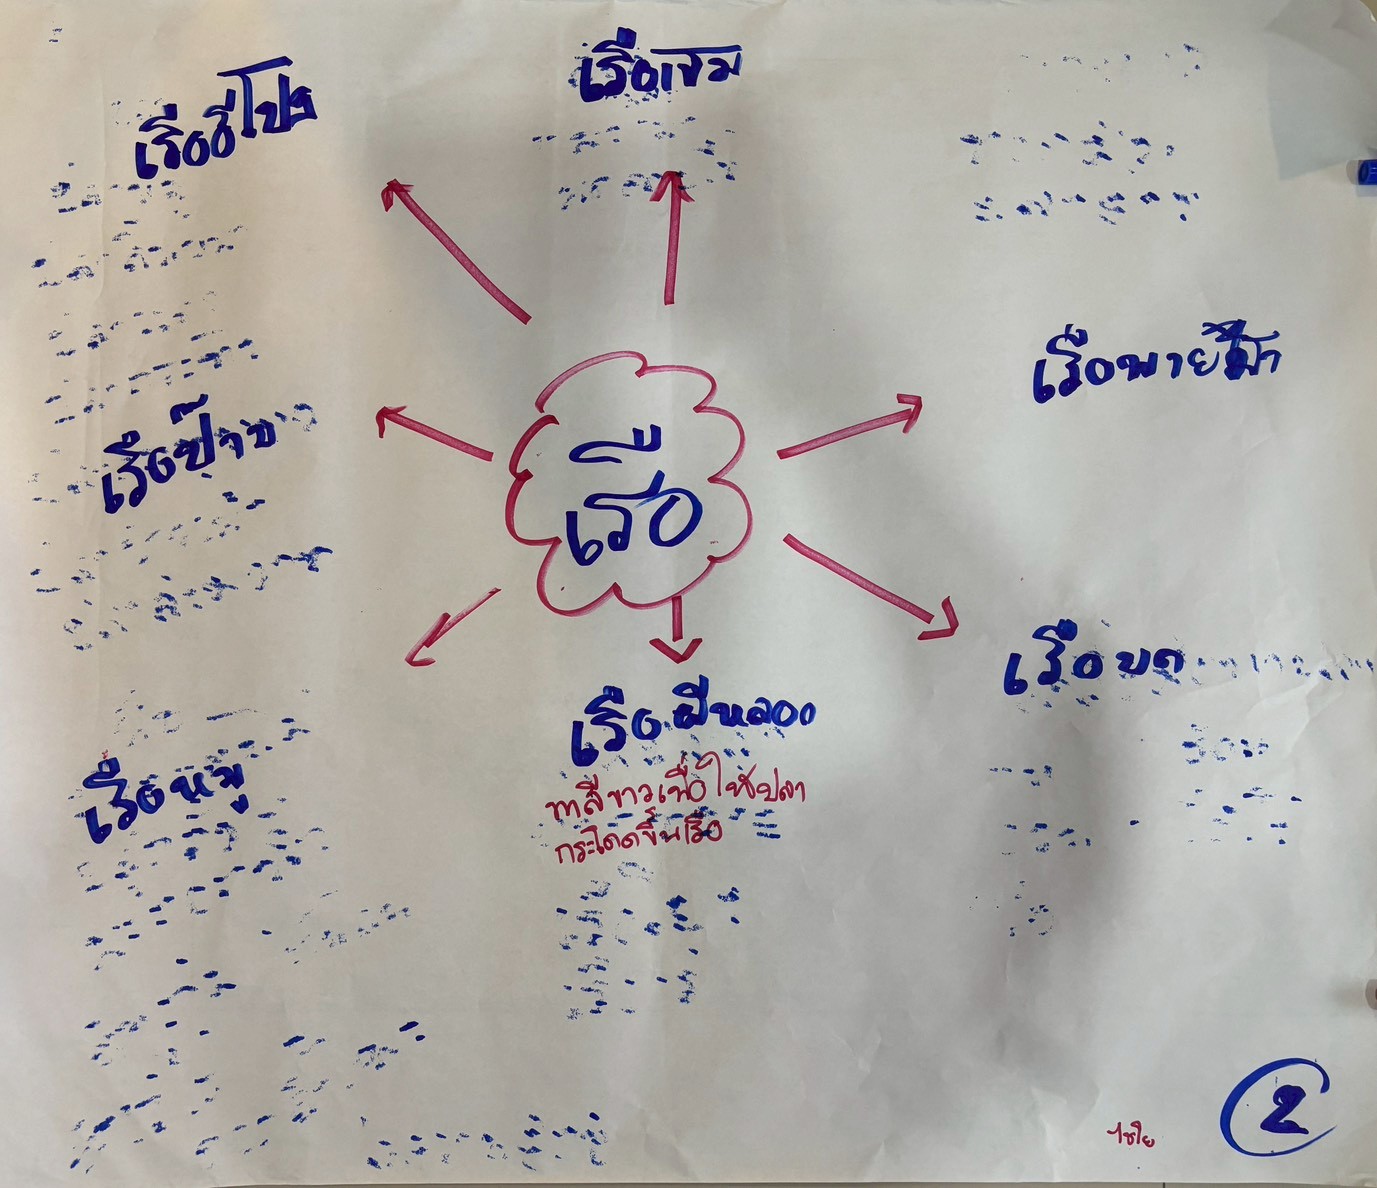 เรือเข็ม
เรือชีโปร
เรือพายม้า
เรือป๊าบ
เรือ
เรือบด
เรือผีหลอก
ทาสีขาวเพื่อให้ปลา
กระโดดขึ้นเรือ
เรือหมู
2